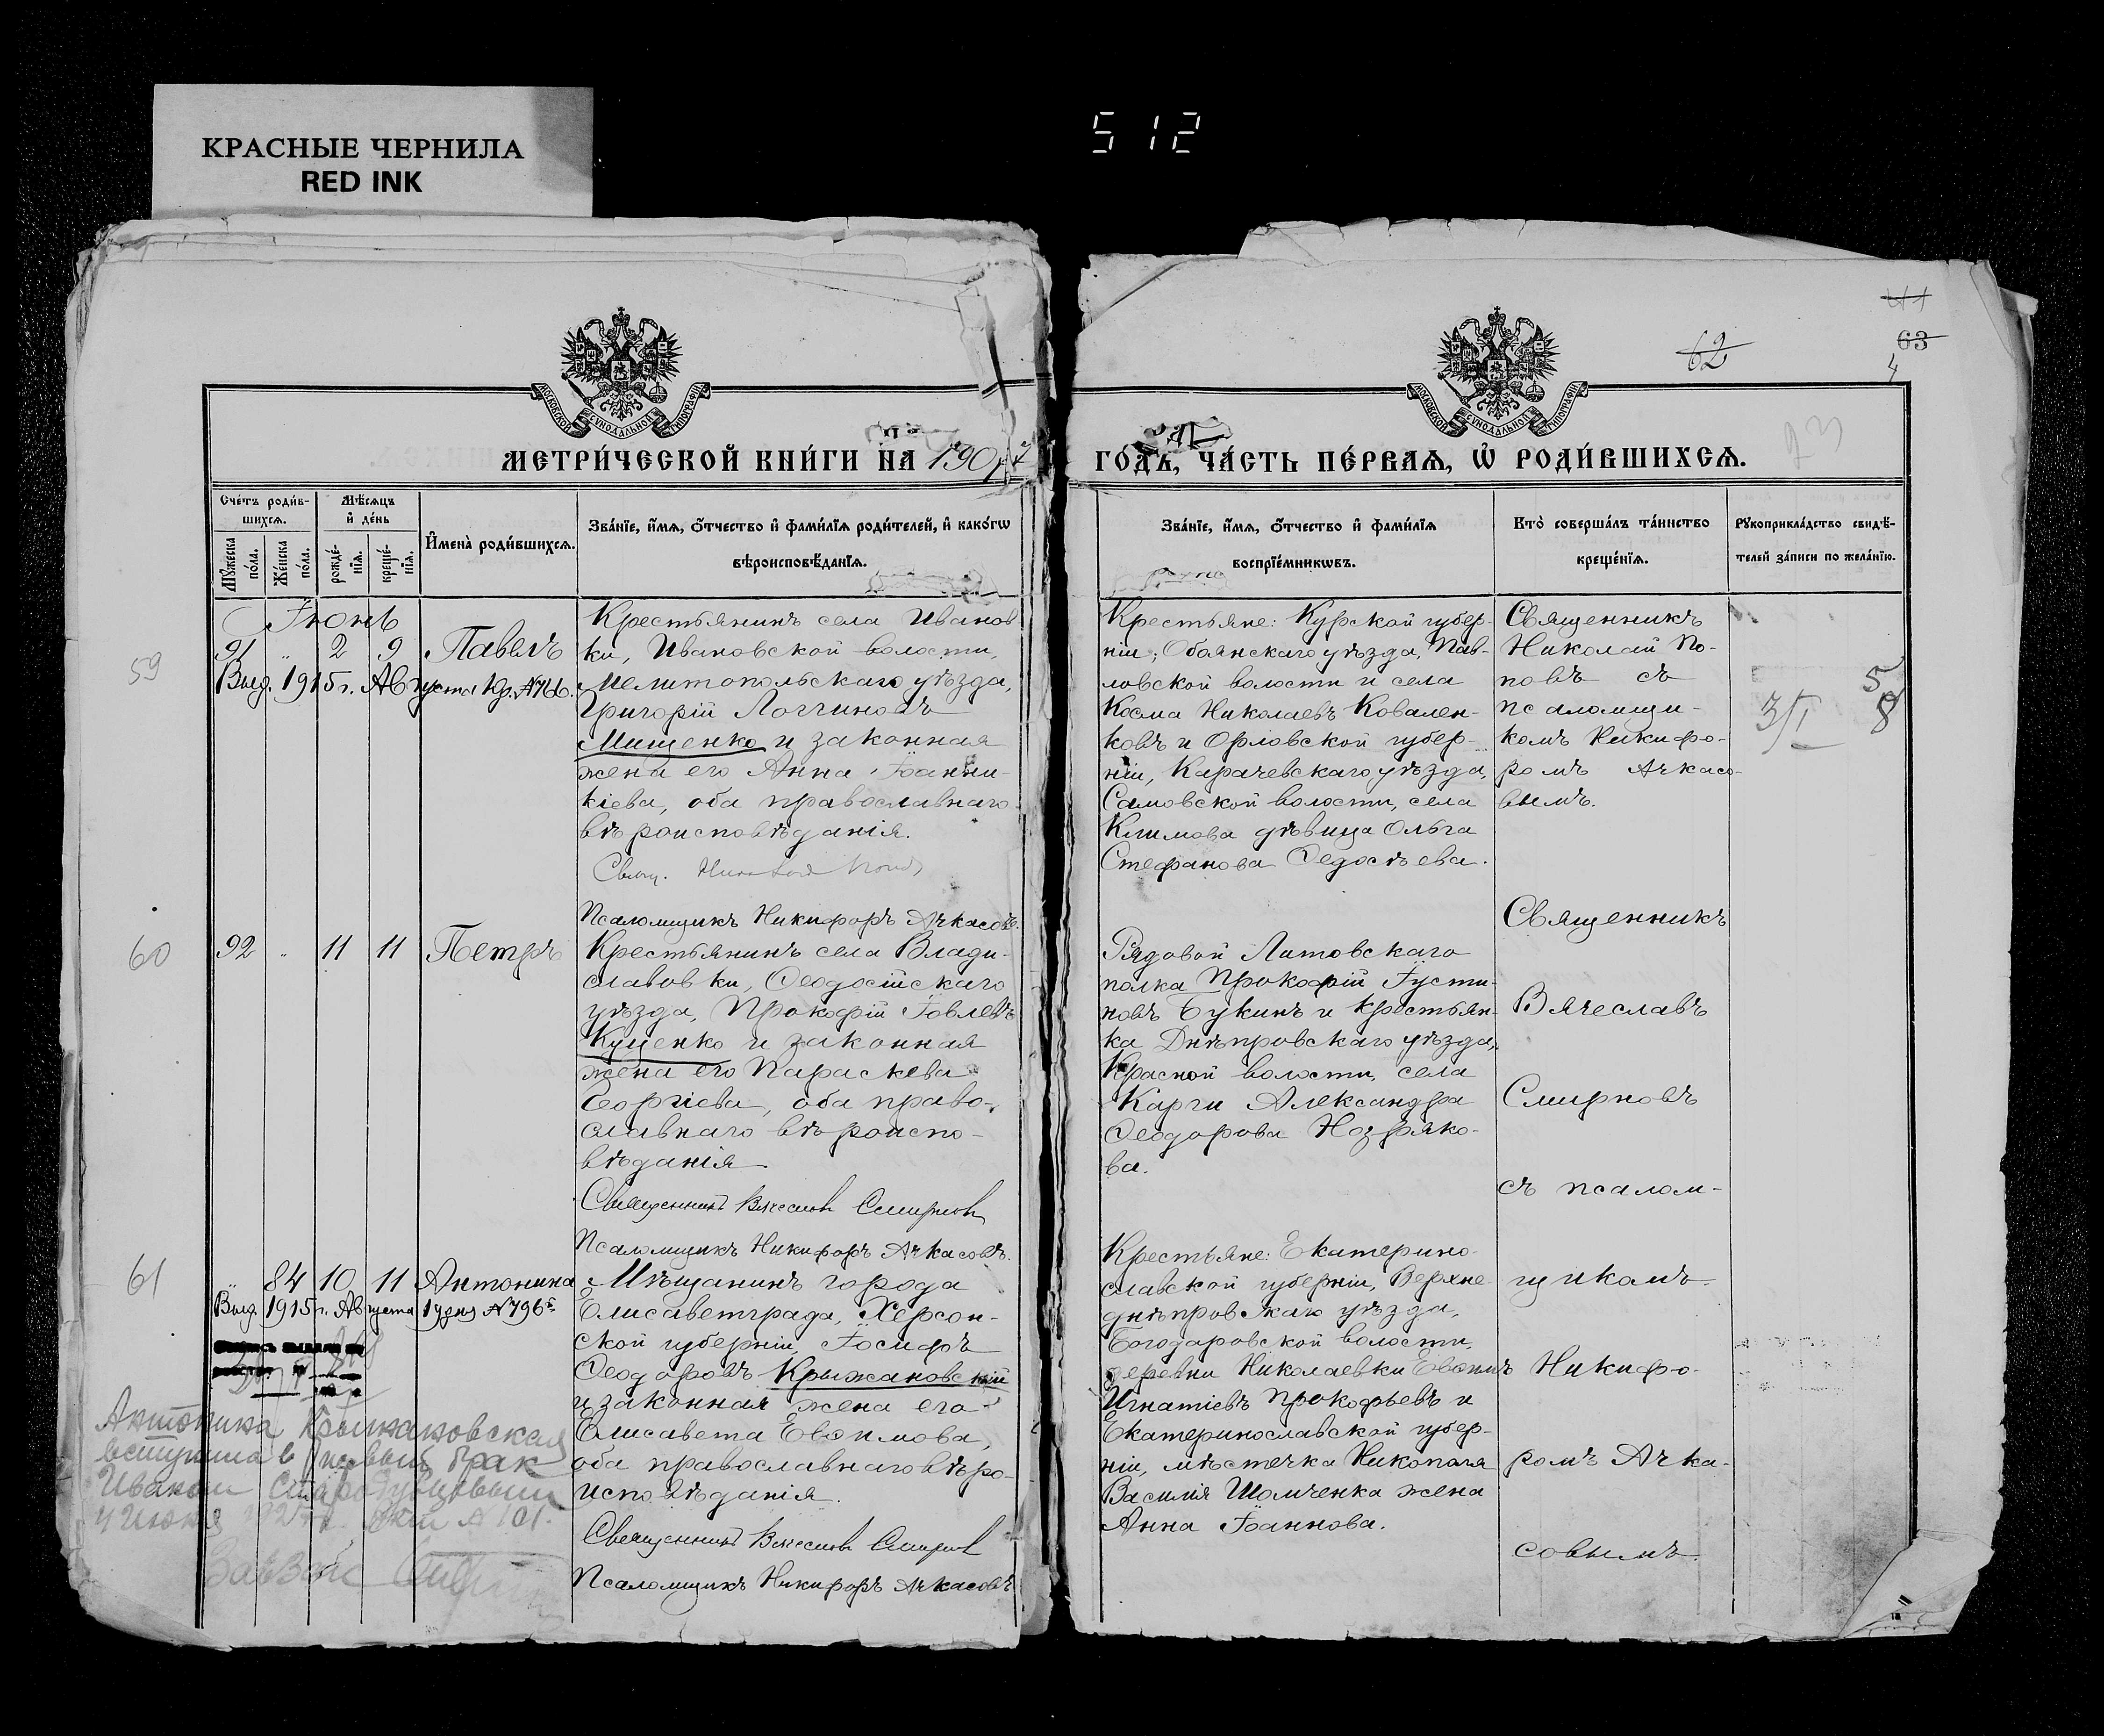 КРАСНЫЕ ЧЕРНИЛА
RED INK
512
63
62
МОСКОВСКОЙ СУНОДАЛЬНОЙ ТИПОГРАФІИ
МОСКОВСКОЙ СУНОДАЛЬНОЙ ТИПОГРАФІИ
МЕТРИ́ЧЕСКОЙ КНИ́ГИ НА 190
ГО́ДЪ, ЧА́СТЬ ПЕ́РВАѦ, Ѡ РОДИ́ВШИХСѦ.
Сче́тъ роди́в-
шихсѧ.
Мꙋ́жеска по́ла.
Же́нска по́ла.
Мѣ́сѧцъ
и҆ де́нь
рожде́-
нїѧ.
креще́-
нїѧ.
И҆мена̀ роди́вшихсѧ.
Зва́нїе, и҆́мѧ, ѻ҆́тчество и҆ фами́лїѧ роди́телей, и҆ како́гѡ
вѣроисповѣ́данїѧ.
Зва́нїе, и҆́мѧ, ѻ҆́тчество и҆ фами́лїѧ
воспрїе́мникѡвъ.
Кто̀ соверша́лъ та́инство
креще́нїѧ.
Рꙋкоприкла́дство свидѣ́-
телей за́писи по жела́нїю.
Іюнь
59
91 " 2 9 Павелъ
Выд. 1915 г. Августа
Крестьянинъ села Иванов
ки, Ивановской волости,
Мелитопольскаго уѣзда,
Григорій Логгиновъ
Мищенко и законная
жена его Анна Іоанни-
кіева, оба православнаго
вѣроисповѣданія.
Свящ. Николай Попов
Псаломщикъ Никифоръ Ачкасовъ.
Крестьяне: Курской губер-
ніи, Обоянскаго уѣзда, Пав-
ловской волости и села
Косма Николаевъ Ковален-
ковъ и Орловской губер-
ніи, Карачевскаго уѣзда,
Самовской волости, села
Климова дѣвица Ольга
Стефанова Ѳедосѣева.
Священникъ
Николай По-
повъ съ
псаломщи-
комъ Никифо-
ромъ Ачкасо-
вымъ.
3/I
5
8
60
92 " 11 11 Петръ
Крестьянинъ села Влади-
славовки, Ѳеодосійскаго
уѣзда, Прокофій Іовлевъ
Куценко и законная
жена его Параскева
Георгіева, оба право-
славнаго вѣроиспо-
вѣданія.
Священникъ Вячеслав Смирнов
Псаломщикъ Никифоръ Ачкасовъ.
Рядовой Литовскаго
полка Прокофій Іусти-
новъ Букинъ и крестьян-
ка Днѣпровскаго уѣзда,
Красной волости, села
Карги Александра
Ѳеодорова Нозряко-
ва.
Священникъ
Вячеславъ
Смирновъ
съ псалом-
щикомъ
Никифо-
ромъ Ачка-
совымъ.
61
" 84 10 11 Антонина
Выд. 1915 г. Августа 1 №796
Мѣщанинъ города
Елисаветграда, Херсон-
ской губерніи, Іосифъ
Ѳеодоровъ Крыжановскій
и законная жена его
Елисавета Евѳимова,
оба православнаго вѣро-
исповѣданія.
Священникъ Вячеслав Смирнов
Псаломщикъ Никифоръ Ачкасовъ
Крестьяне: Екатерино-
славской губерніи, Верхне
днѣпровскаго уѣзда,
Богодаровской волости,
деревни Николаевки Евѳимъ
Игнатіевъ Прокофьевъ и
Екатеринославской губер-
ніи, мѣстечка Никополя
Василія Шомченка жена
Анна Іоаннова.
Антонина Крыжановская
вступила в первый брак
Иваном Стародубцевым
4 Июня